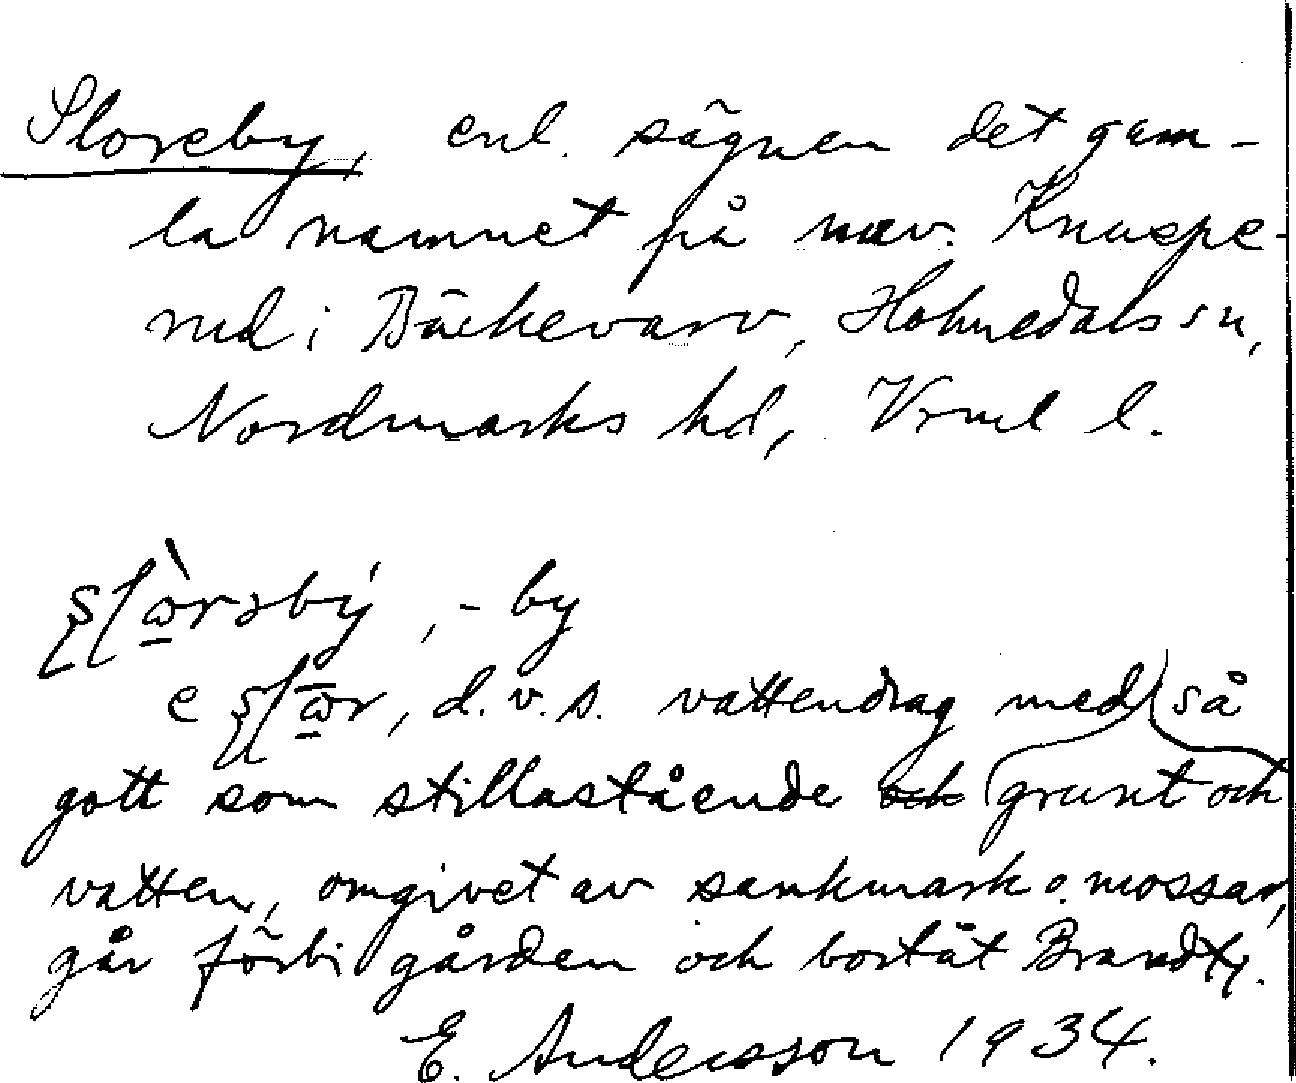 Sloreby, enl. sägnen det gam-
la namnet på nuv. Knuspe-
rud i Bäckevarv, Holmedals sn,
Nordmarks hd, Vrml l.
, -by
e , d.v.s. vattendrag med så
gott som stillastående och grunt och
vatten, omgivet av sankmark o. mossar,
går förbi gården och bortåt Brandty.
E. Andersson 1934.